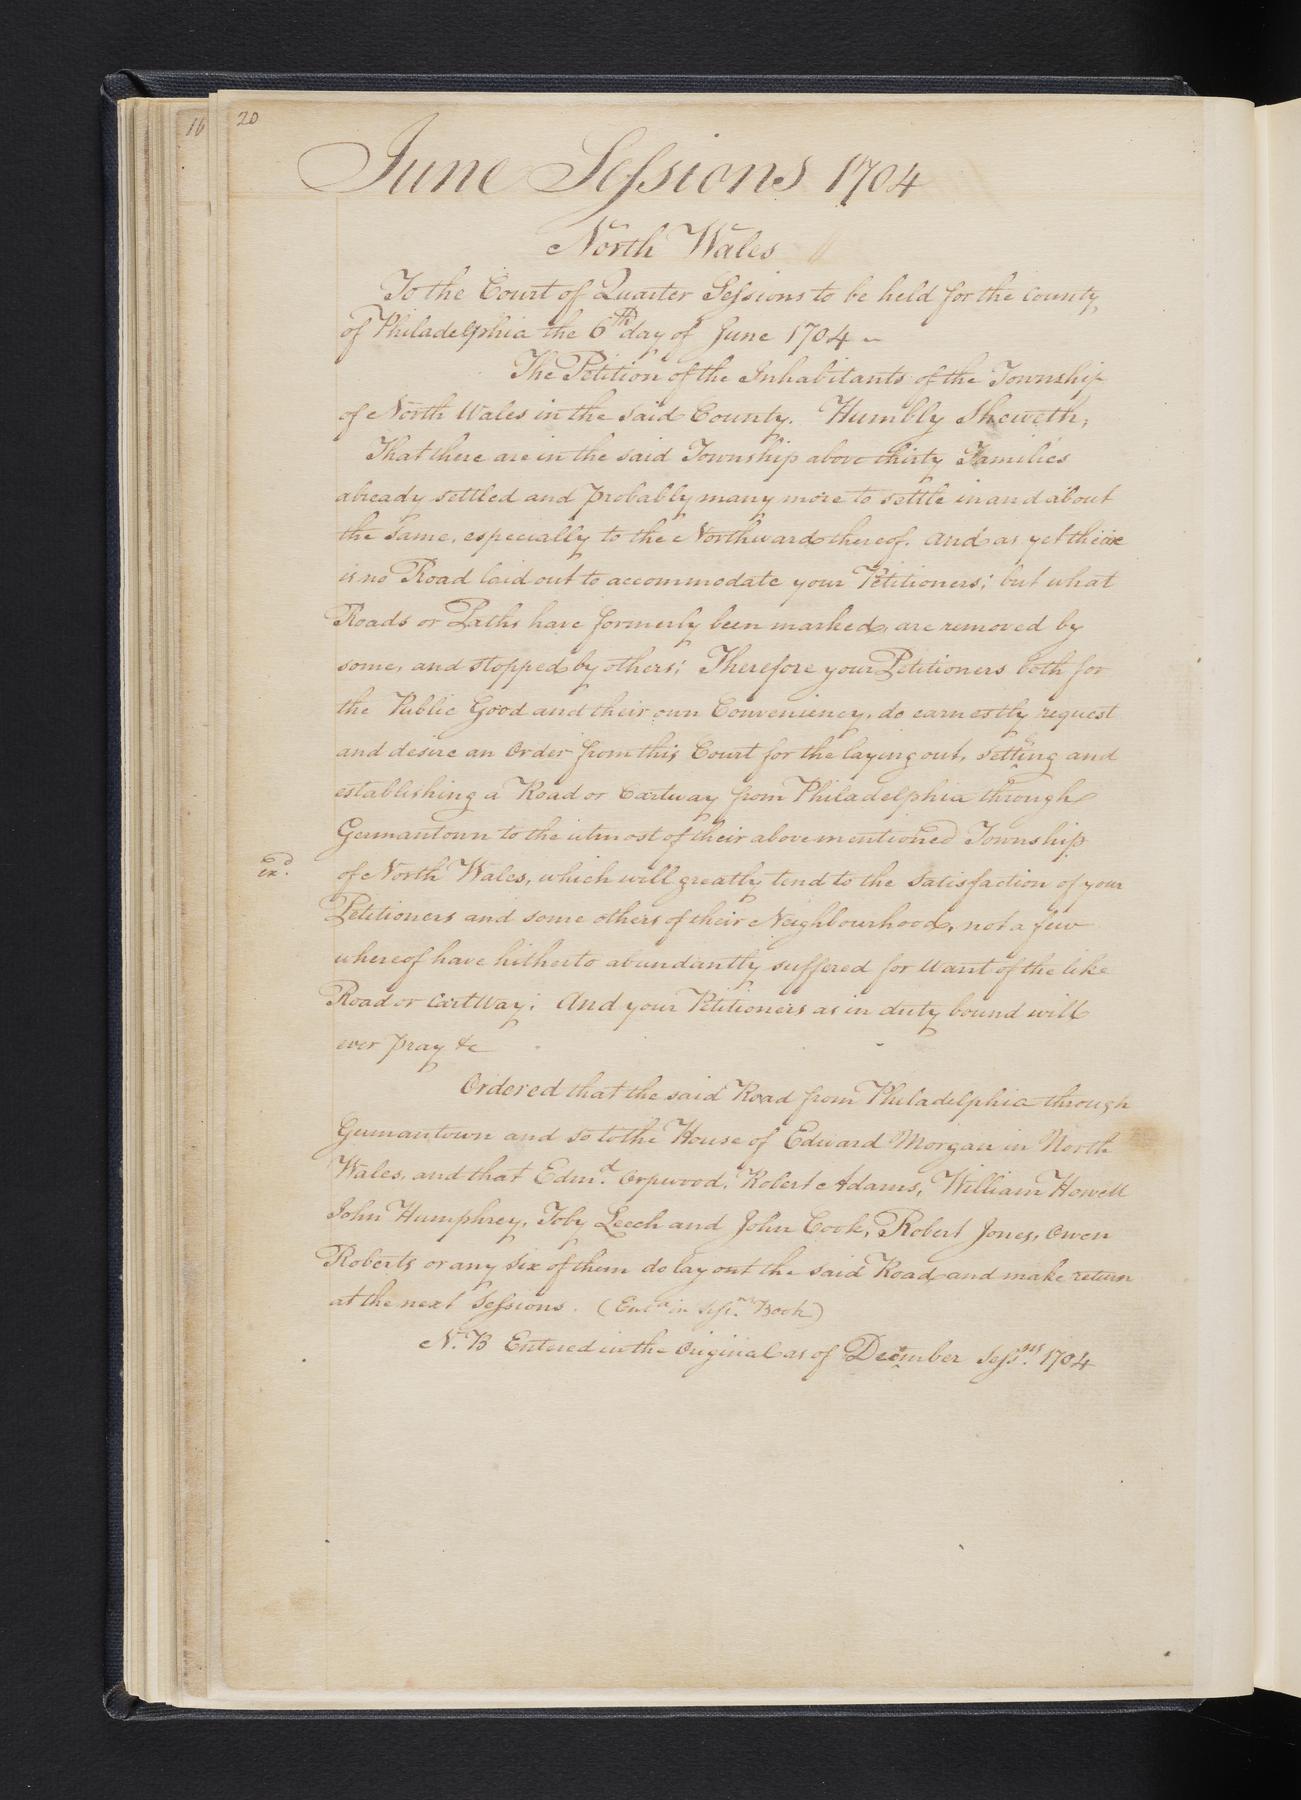 16
20
June Sessions 1704
North Wales
To the Court of Quarter Sessions to be held for the County
of Philadelphia the 6th day of June 1704
The Petition of the Inhabitants of the Township
of North Wales in the said County. Humbly Sheweth,
That there are in the said Township above thirty Families
already settled and probably many more to settle in and about
the same, especially to the Northward thereof. And as yet there
is no Road laid out to accommodate your Petitioners; but what
Roads or Paths have formerly been marked, are removed by
some, and stopped by others; Therefore your Petitioners both for
the Public Good and their own Conveniency, do earnestly request
and desire an Order from this Court for the laying out, setting and
establishing a Road or Cartway from Philadelphia through
Germantown to the utmost of their abovementioned Township
exd.
of North Wales, which will greatly tend to the Satisfaction of your
Petitioners and some others of their Neighbourhood, not a few
whereof have hitherto abundantly suffered for Want of the like
Road or CartWay; And your Petitioners as in duty bound will
ever pray &c
Ordered that the said Road from Philadelphia through
Germantown and so to the House of Edward Morgan in North
Wales, and that Edmd. Orpwood, Robert Adams, William Howell
John Humphrey, Toby Leech and John Cook, Robert Jones, Owen
Roberts or any Six of them do lay out the said Road and make return
at the next Sessions. (Entd in Sessns. Book)
N.B Entered in the Original as of December Sessns. 1704